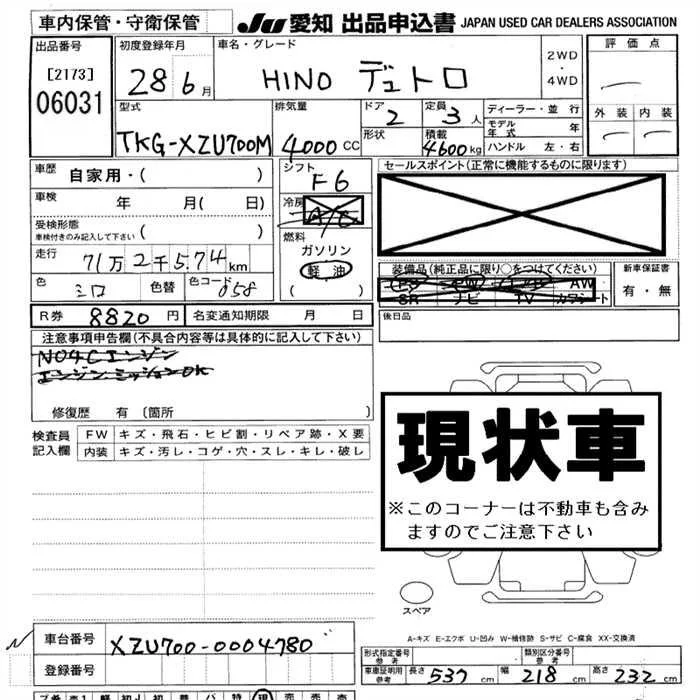 車内保管・守衛保管
JU 愛知 出品申込書 JAPAN USED CAR DEALERS ASSOCIATION
出品番号
[2173]
06031
初度登録年月
28 6月
車名・グレード
HINO デュトロ
2WD
・
4WD
評価点
外装 内装
型式
TKG-XZU700M
排気量
4000CC
ドア
2
形状
定員
3人
積載
4600kg
ディーラー・並行
モデル年式 年
ハンドル 左・右
車歴 自家用・( )
車検 年 月( 日)
受検形態
車検付きのみ記入して下さい ( )
走行 71万2千574km
色 シロ 色替 色コード 058
シフト
F6
冷房
A/C
燃料
ガソリン
軽油
( )
セールスポイント(正常に機能するものに限ります)
装備品(純正品に限り○をつけてください)
PS PW AW
SR ナビ TV カワシート
新車保証書
有・無
後日品
R券 8820円 名変通知期限 月 日
注意事項申告欄(不具合内容等は具体的に記入して下さい)
N04Cエンジン
エンジン ミッションOK
修復歴 有〔箇所 〕
検査員記入欄
FW キズ・飛石・ヒビ割・リペア跡・X要
内装 キズ・汚レ・コゲ・穴・スレ・キレ・破レ
現状車
※このコーナーは不動車も含み
ますのでご注意下さい
スペア
A-キズ E-エクボ U-凹み W-補修跡 S-サビ C-腐食 XX-交換済
車台番号 XZU700-0004780
登録番号
形式指定番号
参考
類別区分番号
参考
車証明用
参考
長さ 537 幅 218 高さ 232 cm